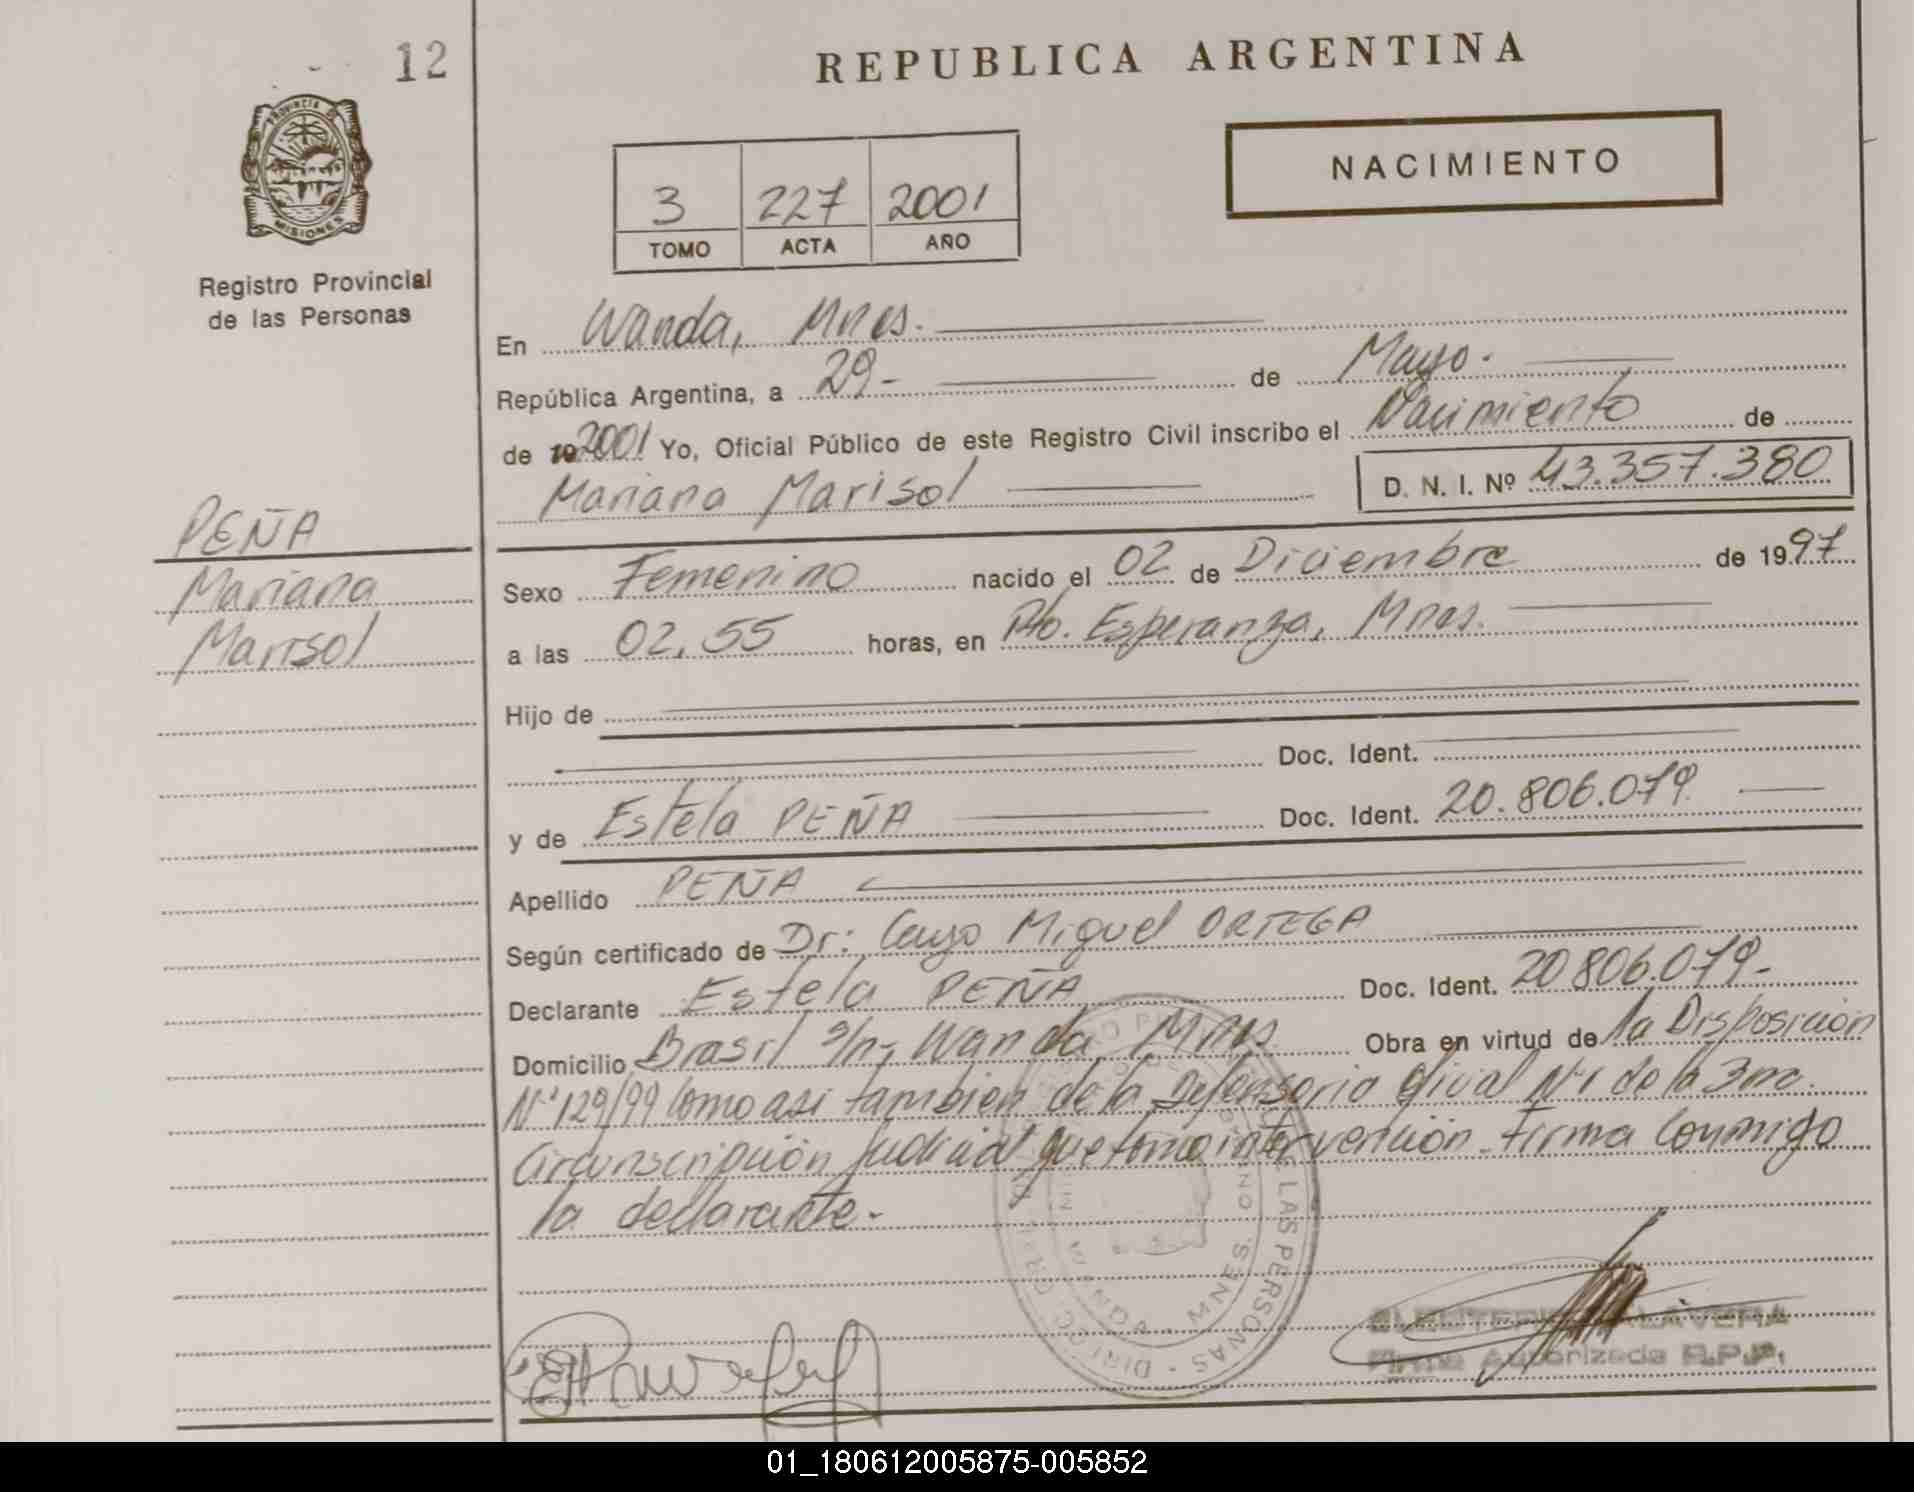 12
REPUBLICA ARGENTINA
PROVINCIA DE
MISIONES
NACIMIENTO
3 227 2001
TOMO ACTA AÑO
Registro Provincial
de las Personas
En Wanda, Mnes.
República Argentina, a 29- de Mayo.
de 19 2001 Yo, Oficial Público de este Registro Civil inscribo el Nacimiento de
Mariana Marisol D. N. I. Nº 43.357.380
PEÑA
Mariana
Marisol
Sexo Femenino nacido el 02 de Diciembre de 1997
a las 02,55 horas, en Pto. Esperanza, Mnes.
Hijo de
Doc. Ident.
y de Estela PEÑA Doc. Ident. 20.806.079
Apellido PEÑA
Según certificado de Dr: Cayo Miguel ORTEGA
Declarante Estela PEÑA Doc. Ident. 20806.079-
Domicilio Brasil s/n, Wanda, Mnes. Obra en virtud de la Disposición
Nº 129/99 como asi tambien de la Defensoria Oficial Nº1 de la 3ra.
Circunscripción Judicial que tomo intervención. Firma Conmigo
la declarante.-
DE LAS PERSONAS
WANDA MNES.
Firma Autorizada R.P.P.
01_180612005875-005852